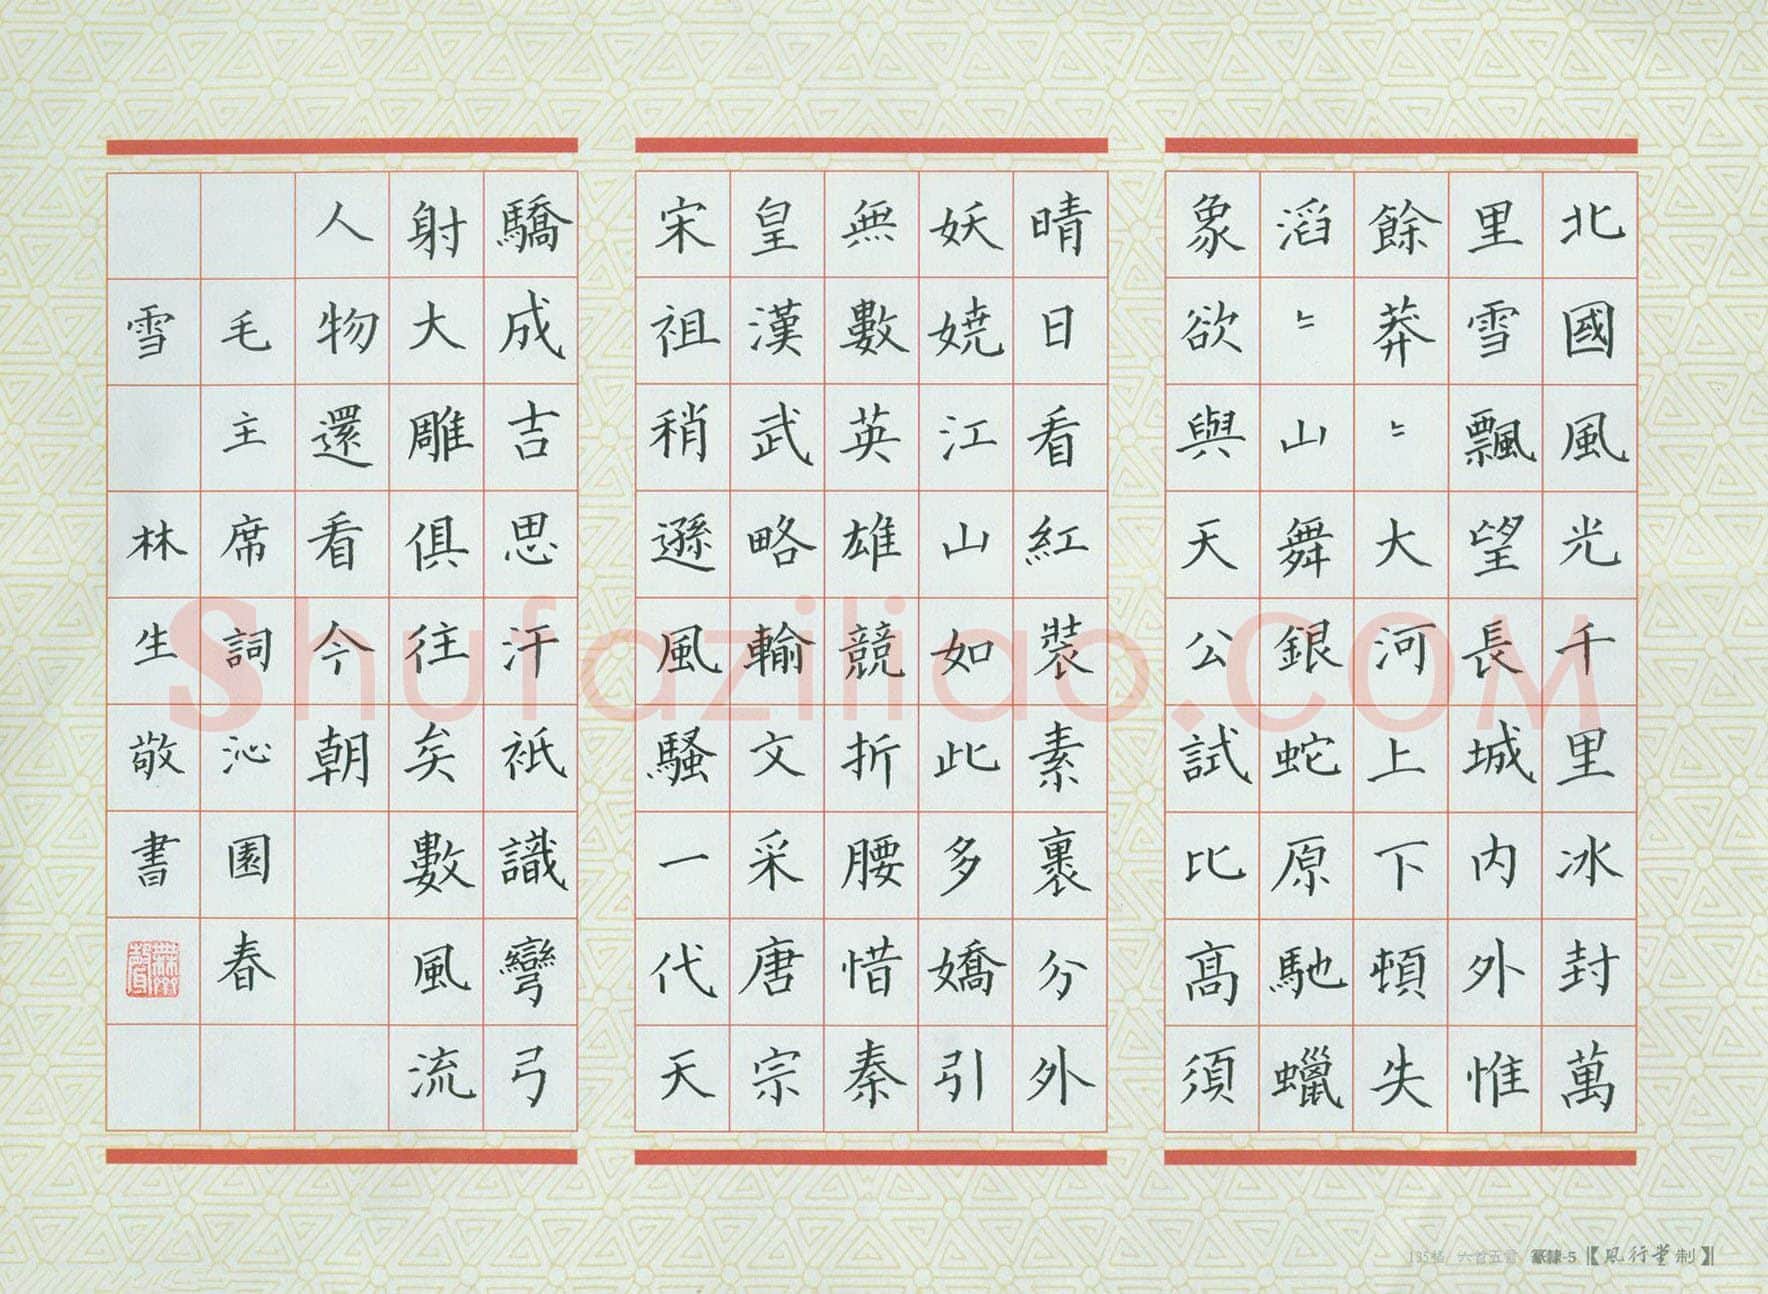 北國風光千里冰封萬
里雪飄望長城内外惟
餘莽〻大河上下頓失
滔〻山舞銀蛇原馳蠟
象欲與天公試比高須
晴日看紅裝素裹分外
妖娆江山如此多嬌引
無數英雄競折腰惜秦
皇漢武略輸文采唐宗
宋祖稍遜風騷一代天
驕成吉思汗祇識彎弓
射大雕俱往矣數風流
人物還看今朝
毛主席詞沁園春
雪 林生敬書
Shufaziliao.com
135格/六首五言 篆隸-5【風行堂制】